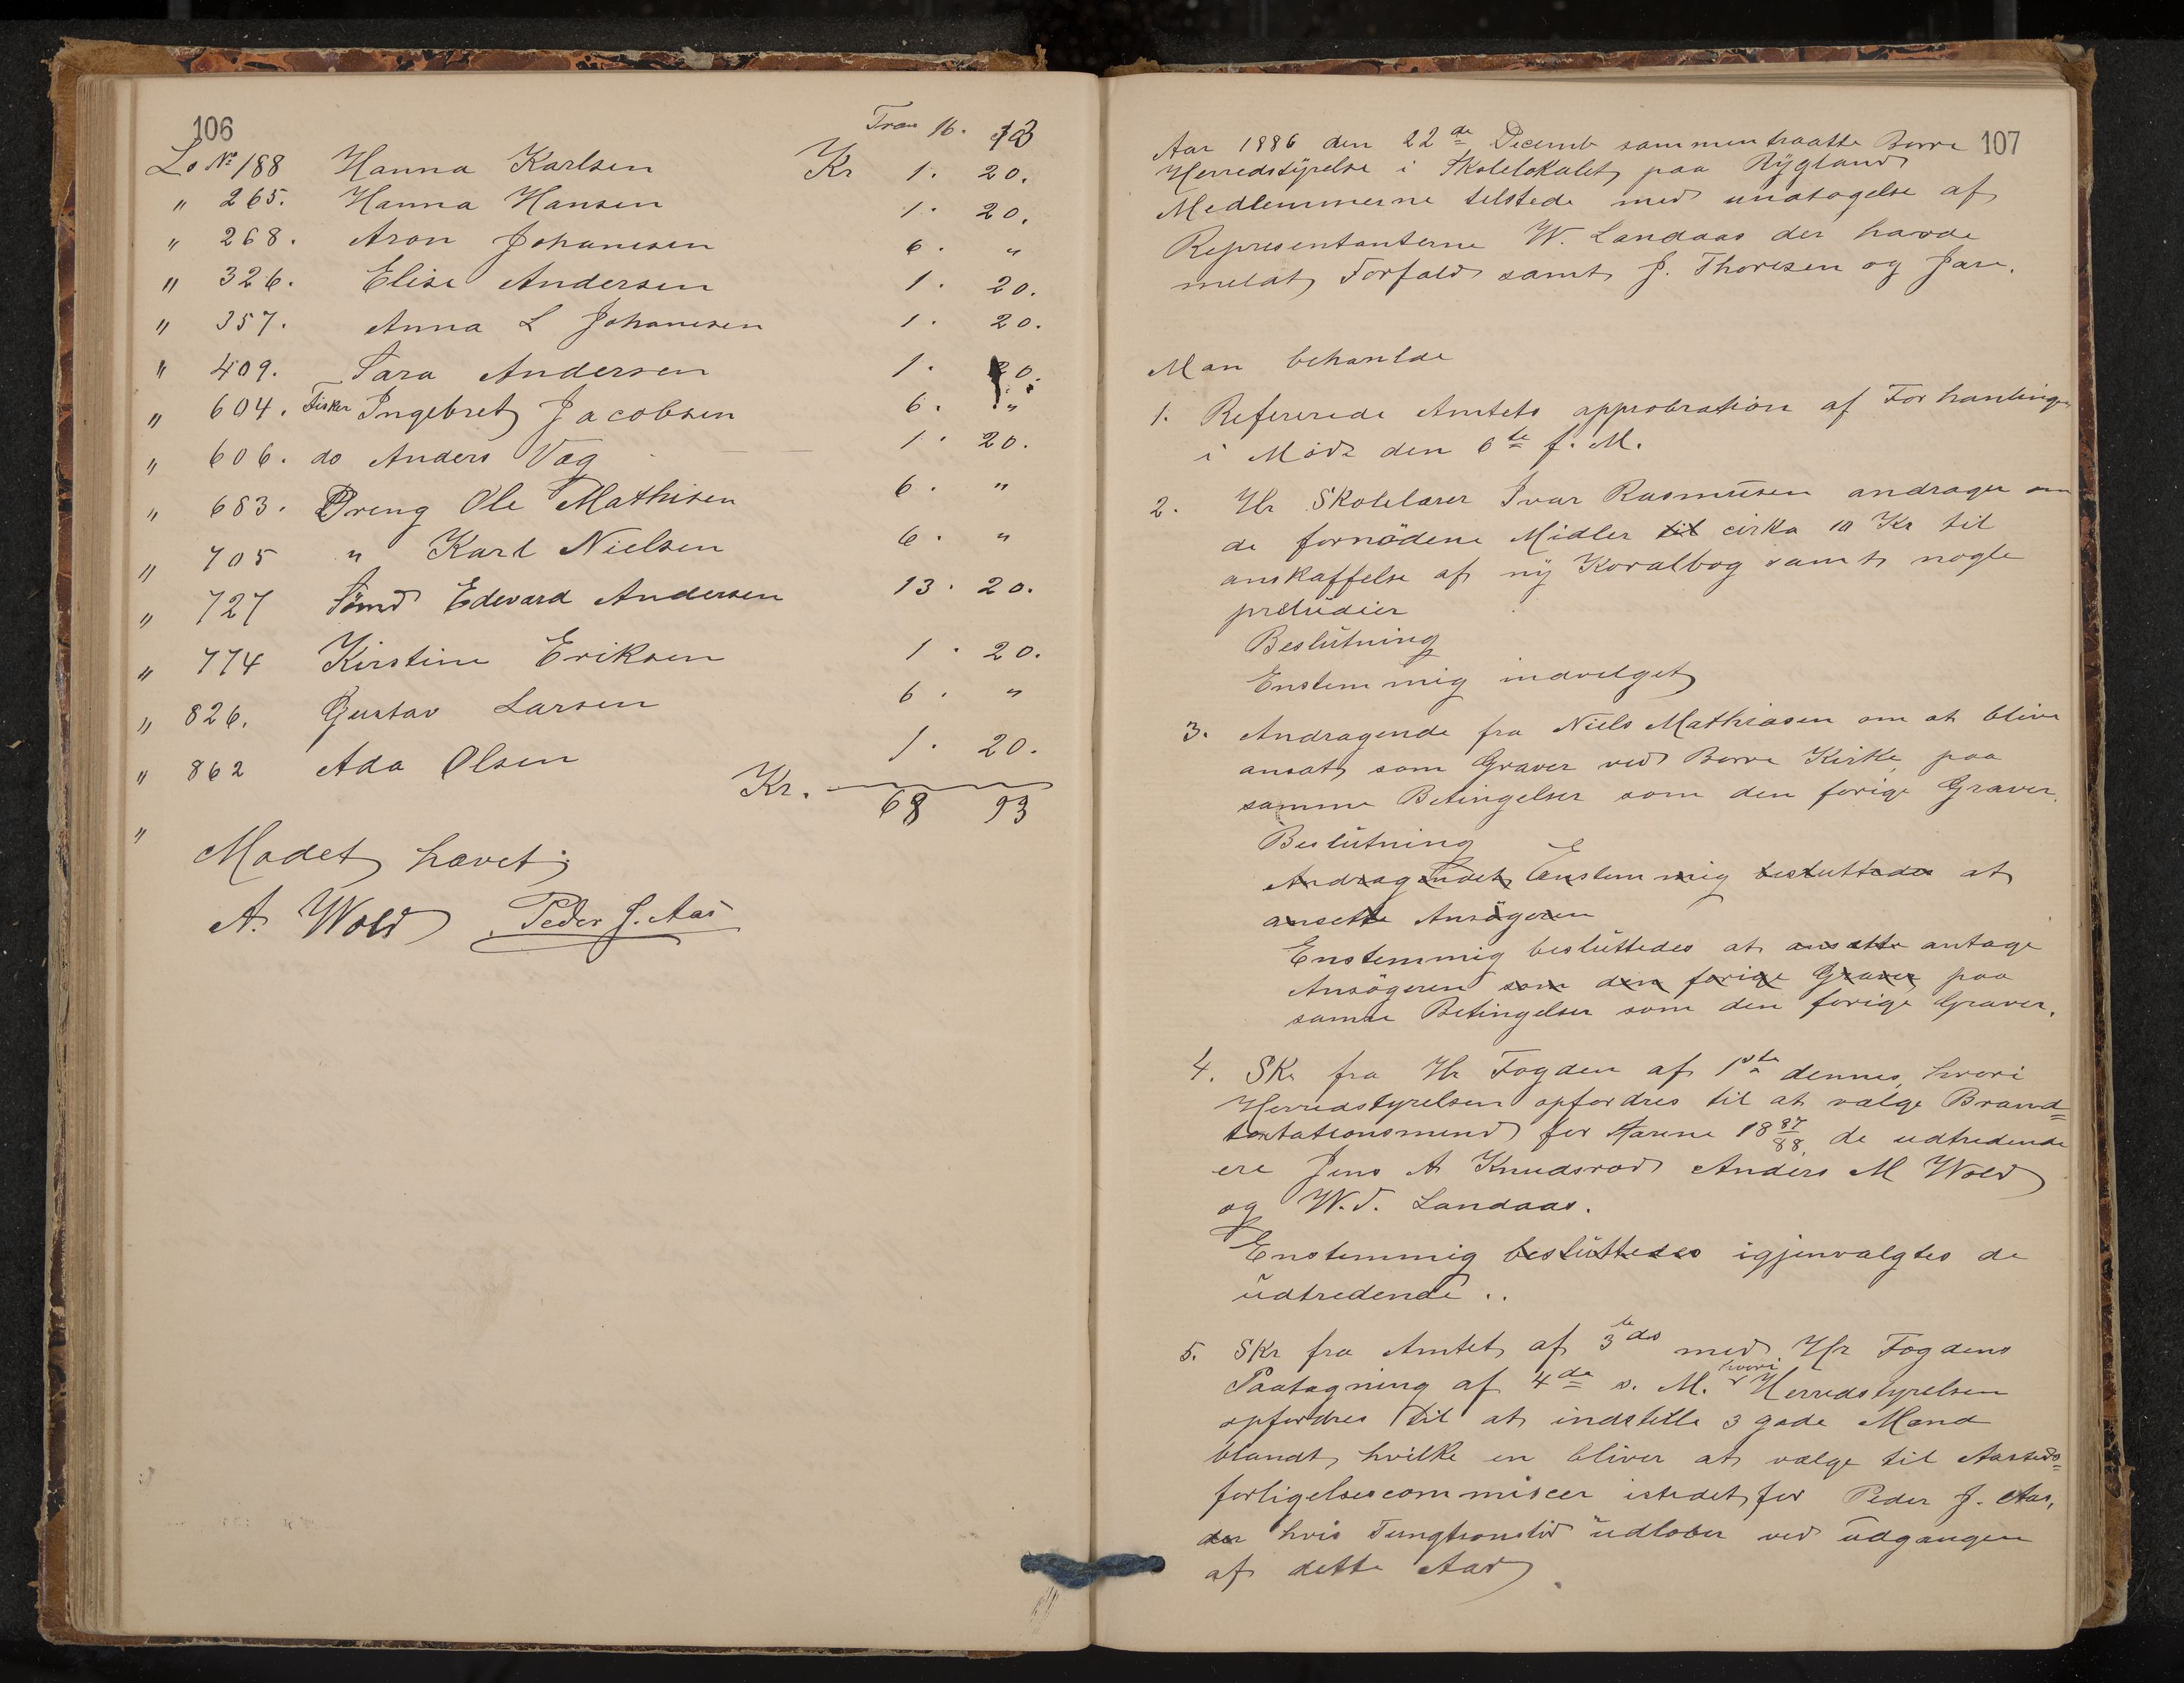 106
Tran 16. 13
Lo No 188 Hanna Karlsen Kr 1. 20.
" 265. Hanna Hansen 1. 20.
" 268. Aron Johannesen 6. "
" 326. Elise Andersen 1. 20.
" 357. Anna L Johannesen 1. 20.
" 409. Sara Andersen 1. 20.
" 604. Fisker Ingebret Jacobsen 6. "
" 606. do Anders Vog 1. 20.
" 683. Dreng Ole Mathisen 6. "
" 705 " Karl Nielsen 6. "
" 727 Sömd Edevard Andersen 13. 20.
" 774 Kirstine Eriksen 1. 20.
" 826. Gustav Larsen 6. "
" 862 Ada Olsen 1. 20.
Kr. 68 93
"
Mødet hævet;
A. Wold Peder J. Aas
107
Aar 1886 den 22de Decemb sammentraatte Borre
Herredstyrelse i Skolelokalet paa Rygland
Medlemmerne tilstede med undtagelse af
Representanterne W. Landaas der havde
meldt Forfald samt J. Thoresen og Jare.
Man behanlde
1. Refererede Amtets approbration af Forhanlingen
i Møde den 6te f. M.
2. Hr Skolelærer Ivar Rasmusen andrager om
de fornödene Midler til cirka 10 Kr til
anskaffelse af ny Koralbog samt nogle
preludier
Beslutning
Enstemmig indvilget
3. Andragende fra Niels Mathiasen om at blive
ansat som Graver ved Borre Kirke paa
samme Betingelser som den forige Graver.
Beslutning
Andragendet Enstemmig besluttedes at
ansette Ansøgeren
Enstemmig besluttedes at ansette antage
Ansögeren som den forige Graver paa
samme Betingelser som den forige Graver.
4. Skr fra Hr Fogden af 1ste dennes, hvori
Herredstyrelsen opfordres til at vælge Brand=
taxtationsmend for Aarene 18 87/88, de udtredende
ere Jens A Knudsrød Anders M Wold
og W. T. Landaas.
Enstemmig besluttedes igjenvalgtes de
udtredende..
5. Skr fra Amtet af 3te ds med Hr Fogdens
Paategning af 4de s. M. hvori Herredstyrelsen
opfordres til at indstille 3 gode Mænd
blandt hvilke en bliver at vælge til Aasteds=
forligelsescommiseer istedet for Peder J. Aas,
der hvis Fungtionstid udløber ved udgangen
af dette Aar